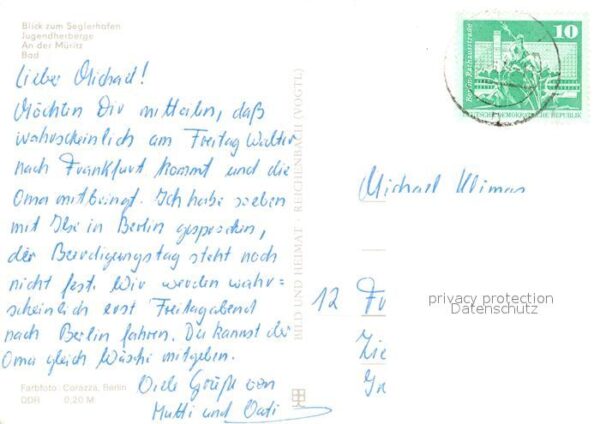 Blick zum Seglerhafen
Jugendherberge
An der Müritz
Bad
Lieber Michael!
Möchten Dir mitteilen, daß
wahrscheinlich am Freitag Walter
nach Frankfurt kommt und die
Oma mitbringt. Ich habe soeben
mit Ilse in Berlin gesprochen,
der Beerdigungstag steht noch
nicht fest. Wir werden wahr=
scheinlich erst Freitagabend
nach Berlin fahren. Du kannst der
Oma gleich Wäsche mitgeben.
Viele Grüße von
Mutti und Vati
Farbfoto: Corazza, Berlin
DDR 0,20 M
BILD UND HEIMAT REICHENBACH (VOGTL)
10
Berlin, Rathausstraße
DEUTSCHE DEMOKRATISCHE REPUBLIK
Michael Klimas
12 Fr
privacy protection
Datenschutz
Zie